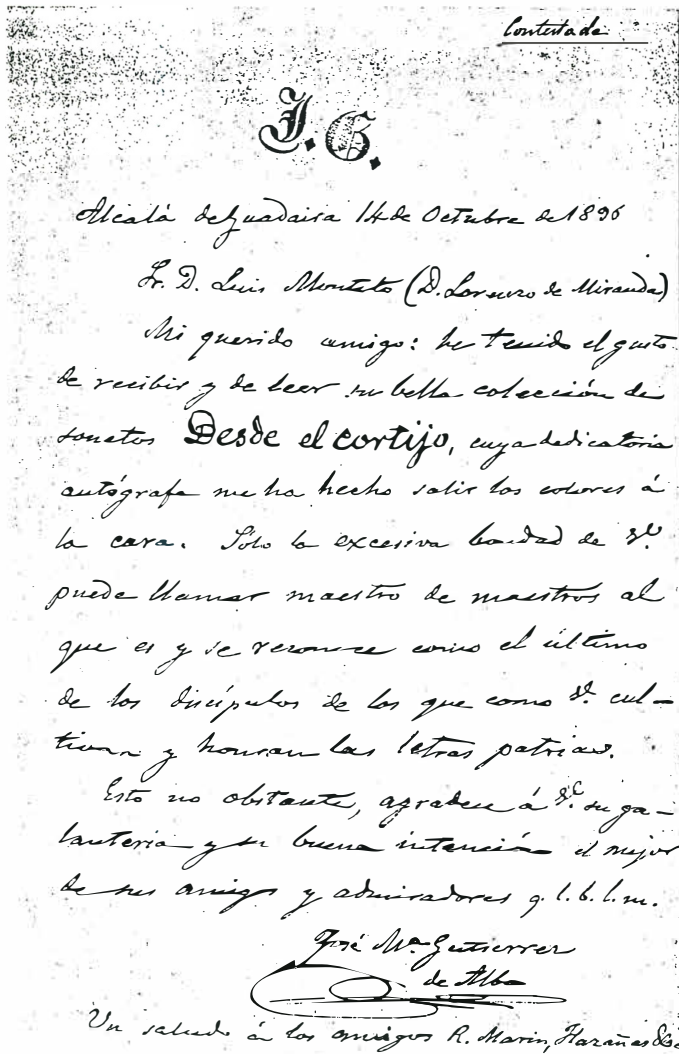 Contestada
J. G.
Alcalá de Guadaira 14 de Octubre de 1896
Sr. D. Luis Montoto (D. Lorenzo de Miranda)
Mi querido amigo: he tenido el gusto
de recibir y de leer su bella colección de
sonetos Desde el cortijo, cuya dedicatoria
autógrafa me ha hecho salir los colores á
la cara. Sólo la excesiva bondad de V.
puede llamar maestro de maestros al
que es y se reconoce como el último
de los discípulos de los que como V. cul-
tivan y honran las letras patrias.
Esto no obstante, agradece á V. su ga-
lantería y su buena intención el mejor
de sus amigos y admiradores q. l. b. l. m.
José Mª Gutierrez
de Alba
Un saludo á los amigos R. Marin, Hazañas &c